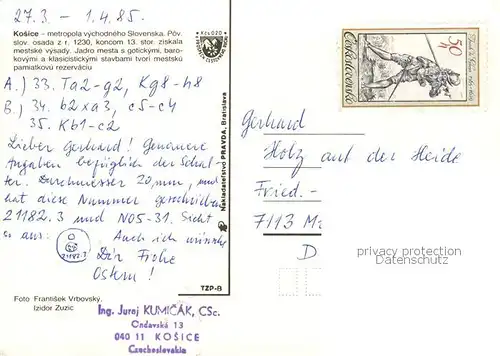 27.3. – 1.4.85.
Košice – metropola východného Slovenska. Pôv.
slov. osada z r. 1230, koncom 13. stor. získala
mestské výsady. Jadro mesta s gotickými, baro-
kovými a klasicistickými stavbami tvorí mestskú
pamiatkovú rezerváciu
Kčs 0,20
A.) 33. Ta2-g2, Kg8-h8
B.) 34. b2xa3, c5-c4
35. Kb1-c2
Lieber Gerhard! Genauere
Angaben bezüglich der Schal-
ter. Durchmesser 20 mm, und
hat diese Nummer geschrieben
21182.3 und N05-31. Sieht
so aus:
21182.3
Auch ich wünsche
Dir Frohe
Ostern!
Nakladateľstvo PRAVDA, Bratislava
TZP-B
Foto František Vrbovský,
Izidor Zuzic
Ing. Juraj KUMIČÁK, CSc.
Ondavská 13
040 11 KOŠICE
Czechoslovakia
50
Československo
Gerhard
Holz auf der Heide
Fried.-
7113
D
privacy protection
AKPOOL.DE